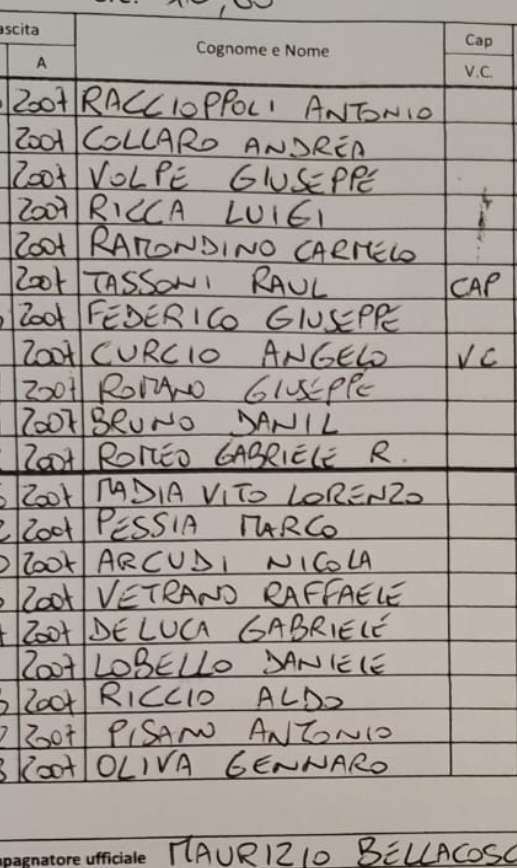 ascita Cognome e Nome Cap
A V.C.
2007 RACCIOPPOLI ANTONIO
2007 COLLARO ANDREA
2007 VOLPE GIUSEPPE
2007 RICCA LUIGI
2007 RAMONDINO CARMELO
2007 TASSONI RAUL CAP
2007 FEDERICO GIUSEPPE
2007 CURCIO ANGELO VC
2007 ROMANO GIUSEPPE
2007 BRUNO DANIL
2007 ROMEO GABRIELE R.
2007 MADIA VITO LORENZO
2007 PESSIA MARCO
2007 ARCUDI NICOLA
2007 VETRANO RAFFAELE
2007 DE LUCA GABRIELE
2007 LOBELLO DANIELE
2007 RICCIO ALDO
2007 PISANO ANTONIO
2007 OLIVA GENNARO
mpagnatore ufficiale MAURIZIO BELLACOSC